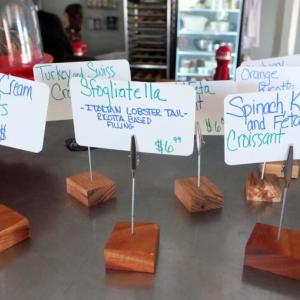 Cream
$
Turkey and Swiss
Sfogliatella
-ITALIAN LOBSTER TAIL-
RICOTTA BASED
FILLING
$6.99
Feta
$6
Orange
Spinach, K
and Feta
Croissant